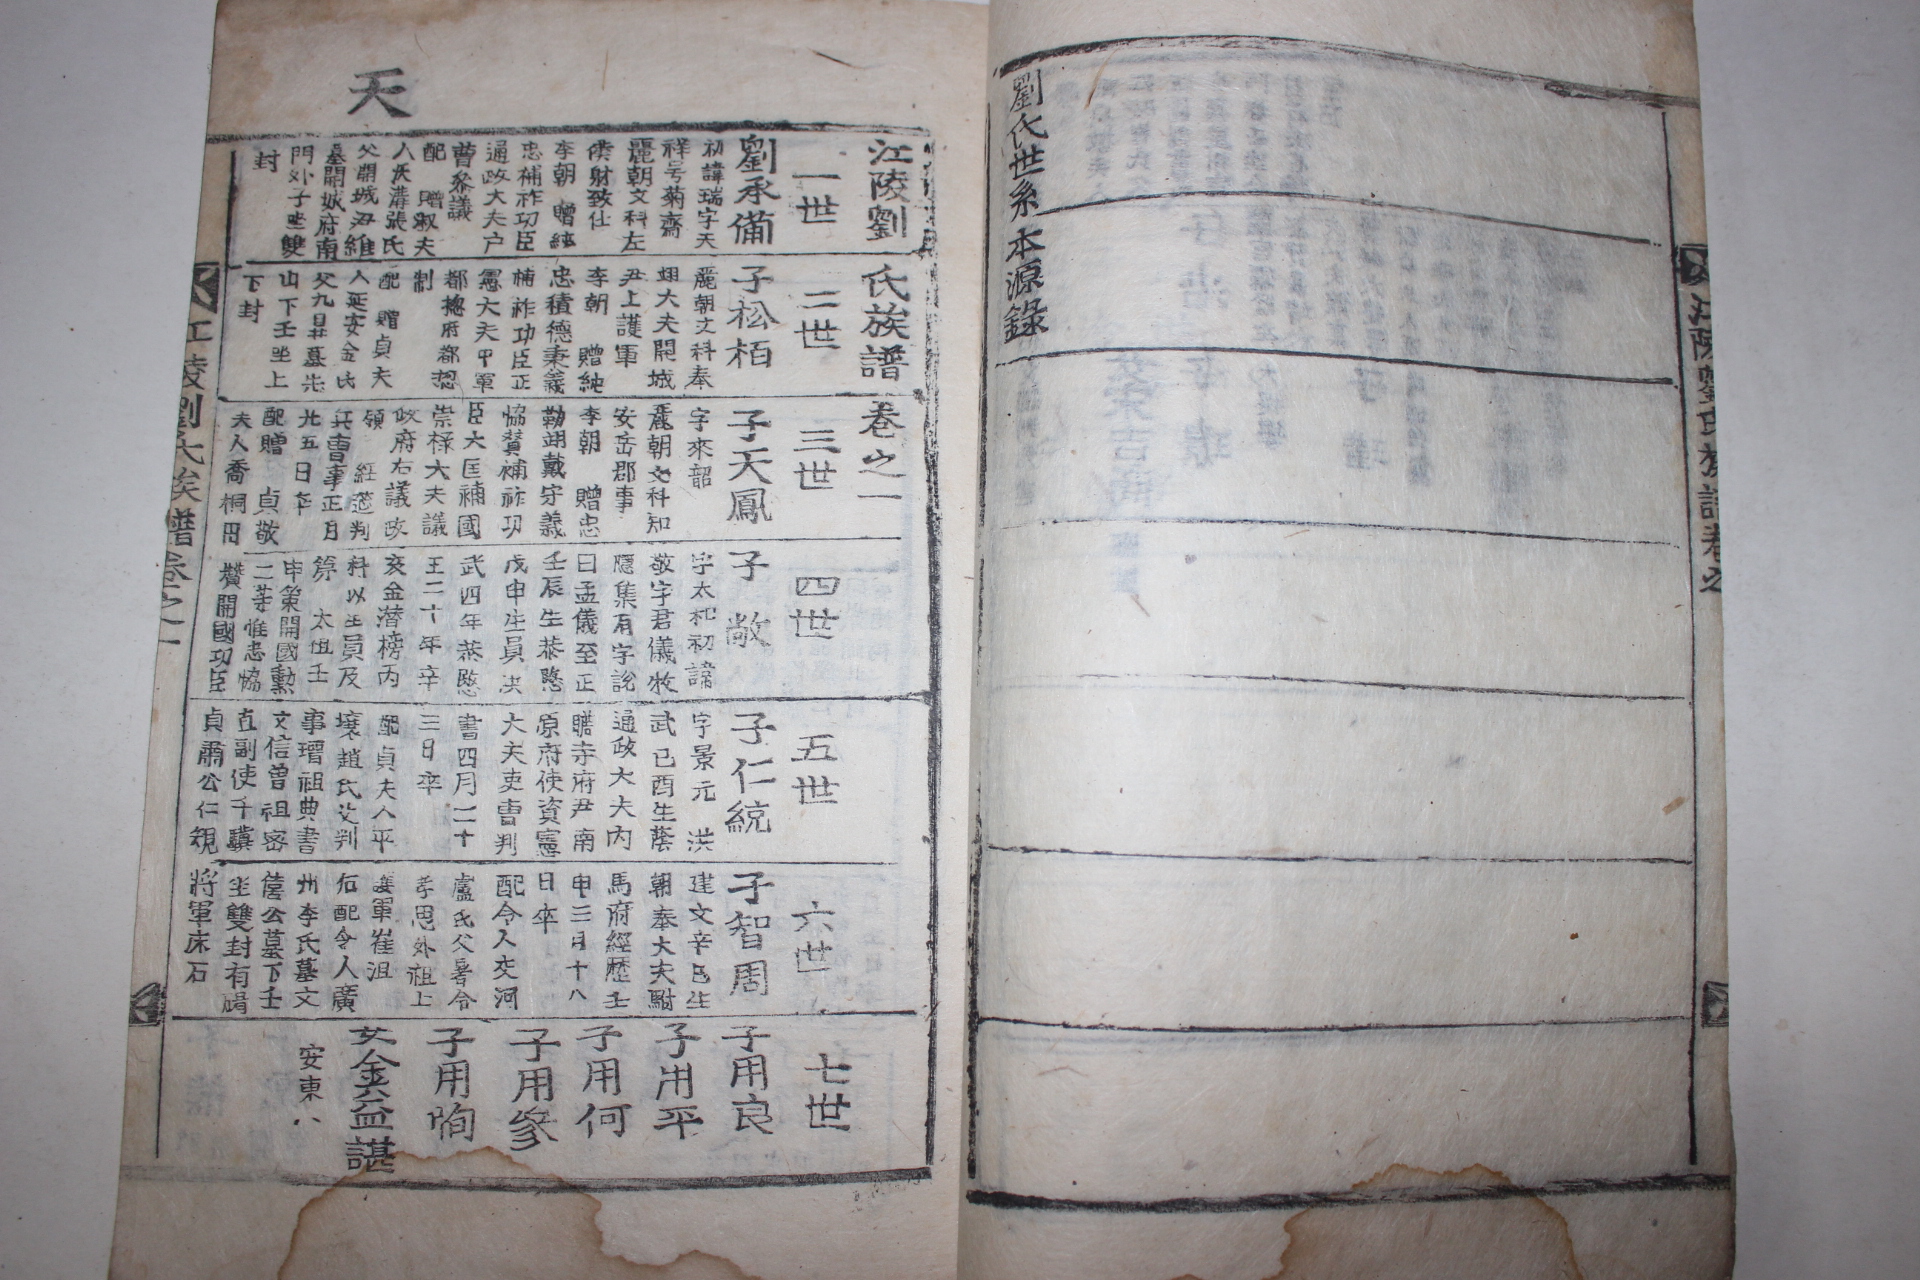 劉氏世系本源錄
江陵劉氏族譜卷之
天
江陵劉氏族譜卷之一
一世
劉承備
初諱瑞字天
祥号菊齋
麗朝文科左
僕射致仕
李朝 贈純
忠補祚功臣
通政大夫户
曹叅議
配 贈淑夫
人氏溝張氏
父開城尹維
墓開城府南
門外子坐雙
封
二世
子松栢
麗朝文科奉
翊大夫開城
尹上護軍
李朝 贈純
忠積德秉義
補祚功臣正
憲大夫中軍
都摠府都摠
制
配 贈貞夫
人延安金氏
父九昇墓先
山下壬坐上
下封
三世
子天鳳
字來韶
麗朝文科知
安岳郡事
李朝 贈忠
勤翊戴守義
協賛補祚功
臣大匡補國
崇祿大夫議
政府右議政
領 經筵判
兵曹事正月
卄五日卒
配贈 貞敬
夫人喬桐田
四世
子敞
字太和初諱
敬字君儀牧
隱集有字說
曰孟儀至正
壬辰生恭愍
戊申生員洪
武四年恭愍
王二十年辛
亥金潛榜丙
科以生員及
第 太祖壬
申策開國勳
二等推忠協
贊開國功臣
五世
子仁統
字景元 洪
武己酉生蔭
通政大夫內
贍寺府尹南
原府使資憲
大夫吏曹判
書四月二十
三日卒
配貞夫人平
壤趙氏父判
事瑨祖典書
文信曾祖密
直副使千驥
貞肅公仁規
六世
子智周
建文辛巳生
朝奉大夫駙
馬府經歷壬
申三月十八
日卒
配令人交河
盧氏父署令
孝思外祖上
護軍崔沮
后配令人廣
州李氏墓文
僖公墓下壬
坐雙封有階
將軍床石
七世
子用良
子用平
子用何
子用參
子用恂
女金益諶
安東人
江陵劉氏族譜卷之一